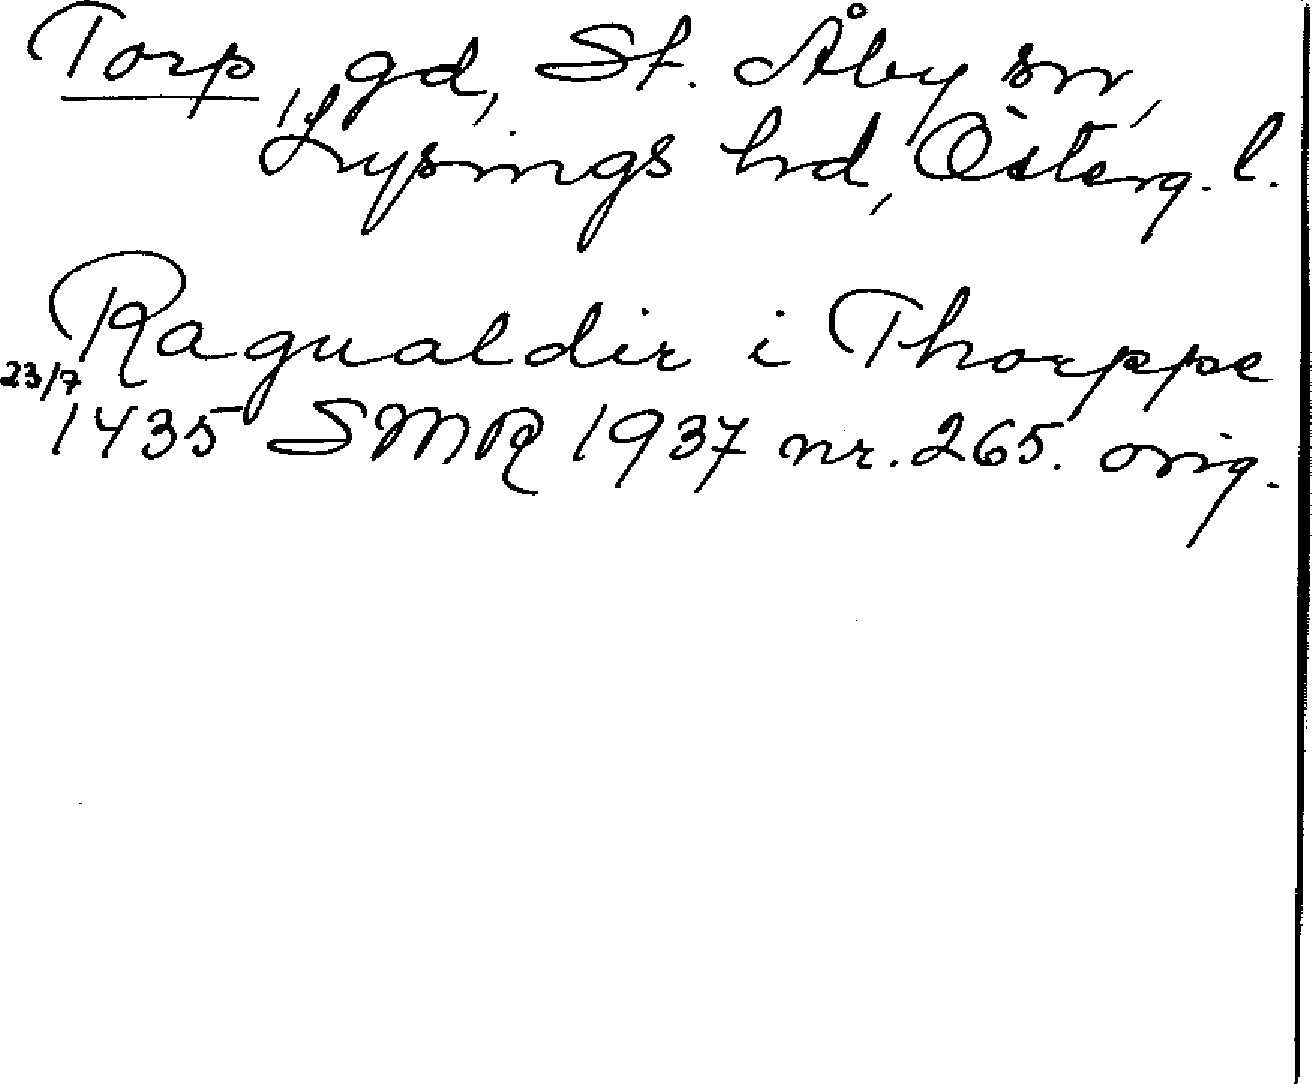 Torp, gd, St. Åby sn,
Lysings hd, Österg. l.
Ragualdir i Thorppe
23/7
1435 SMR 1937 nr. 265. orig.